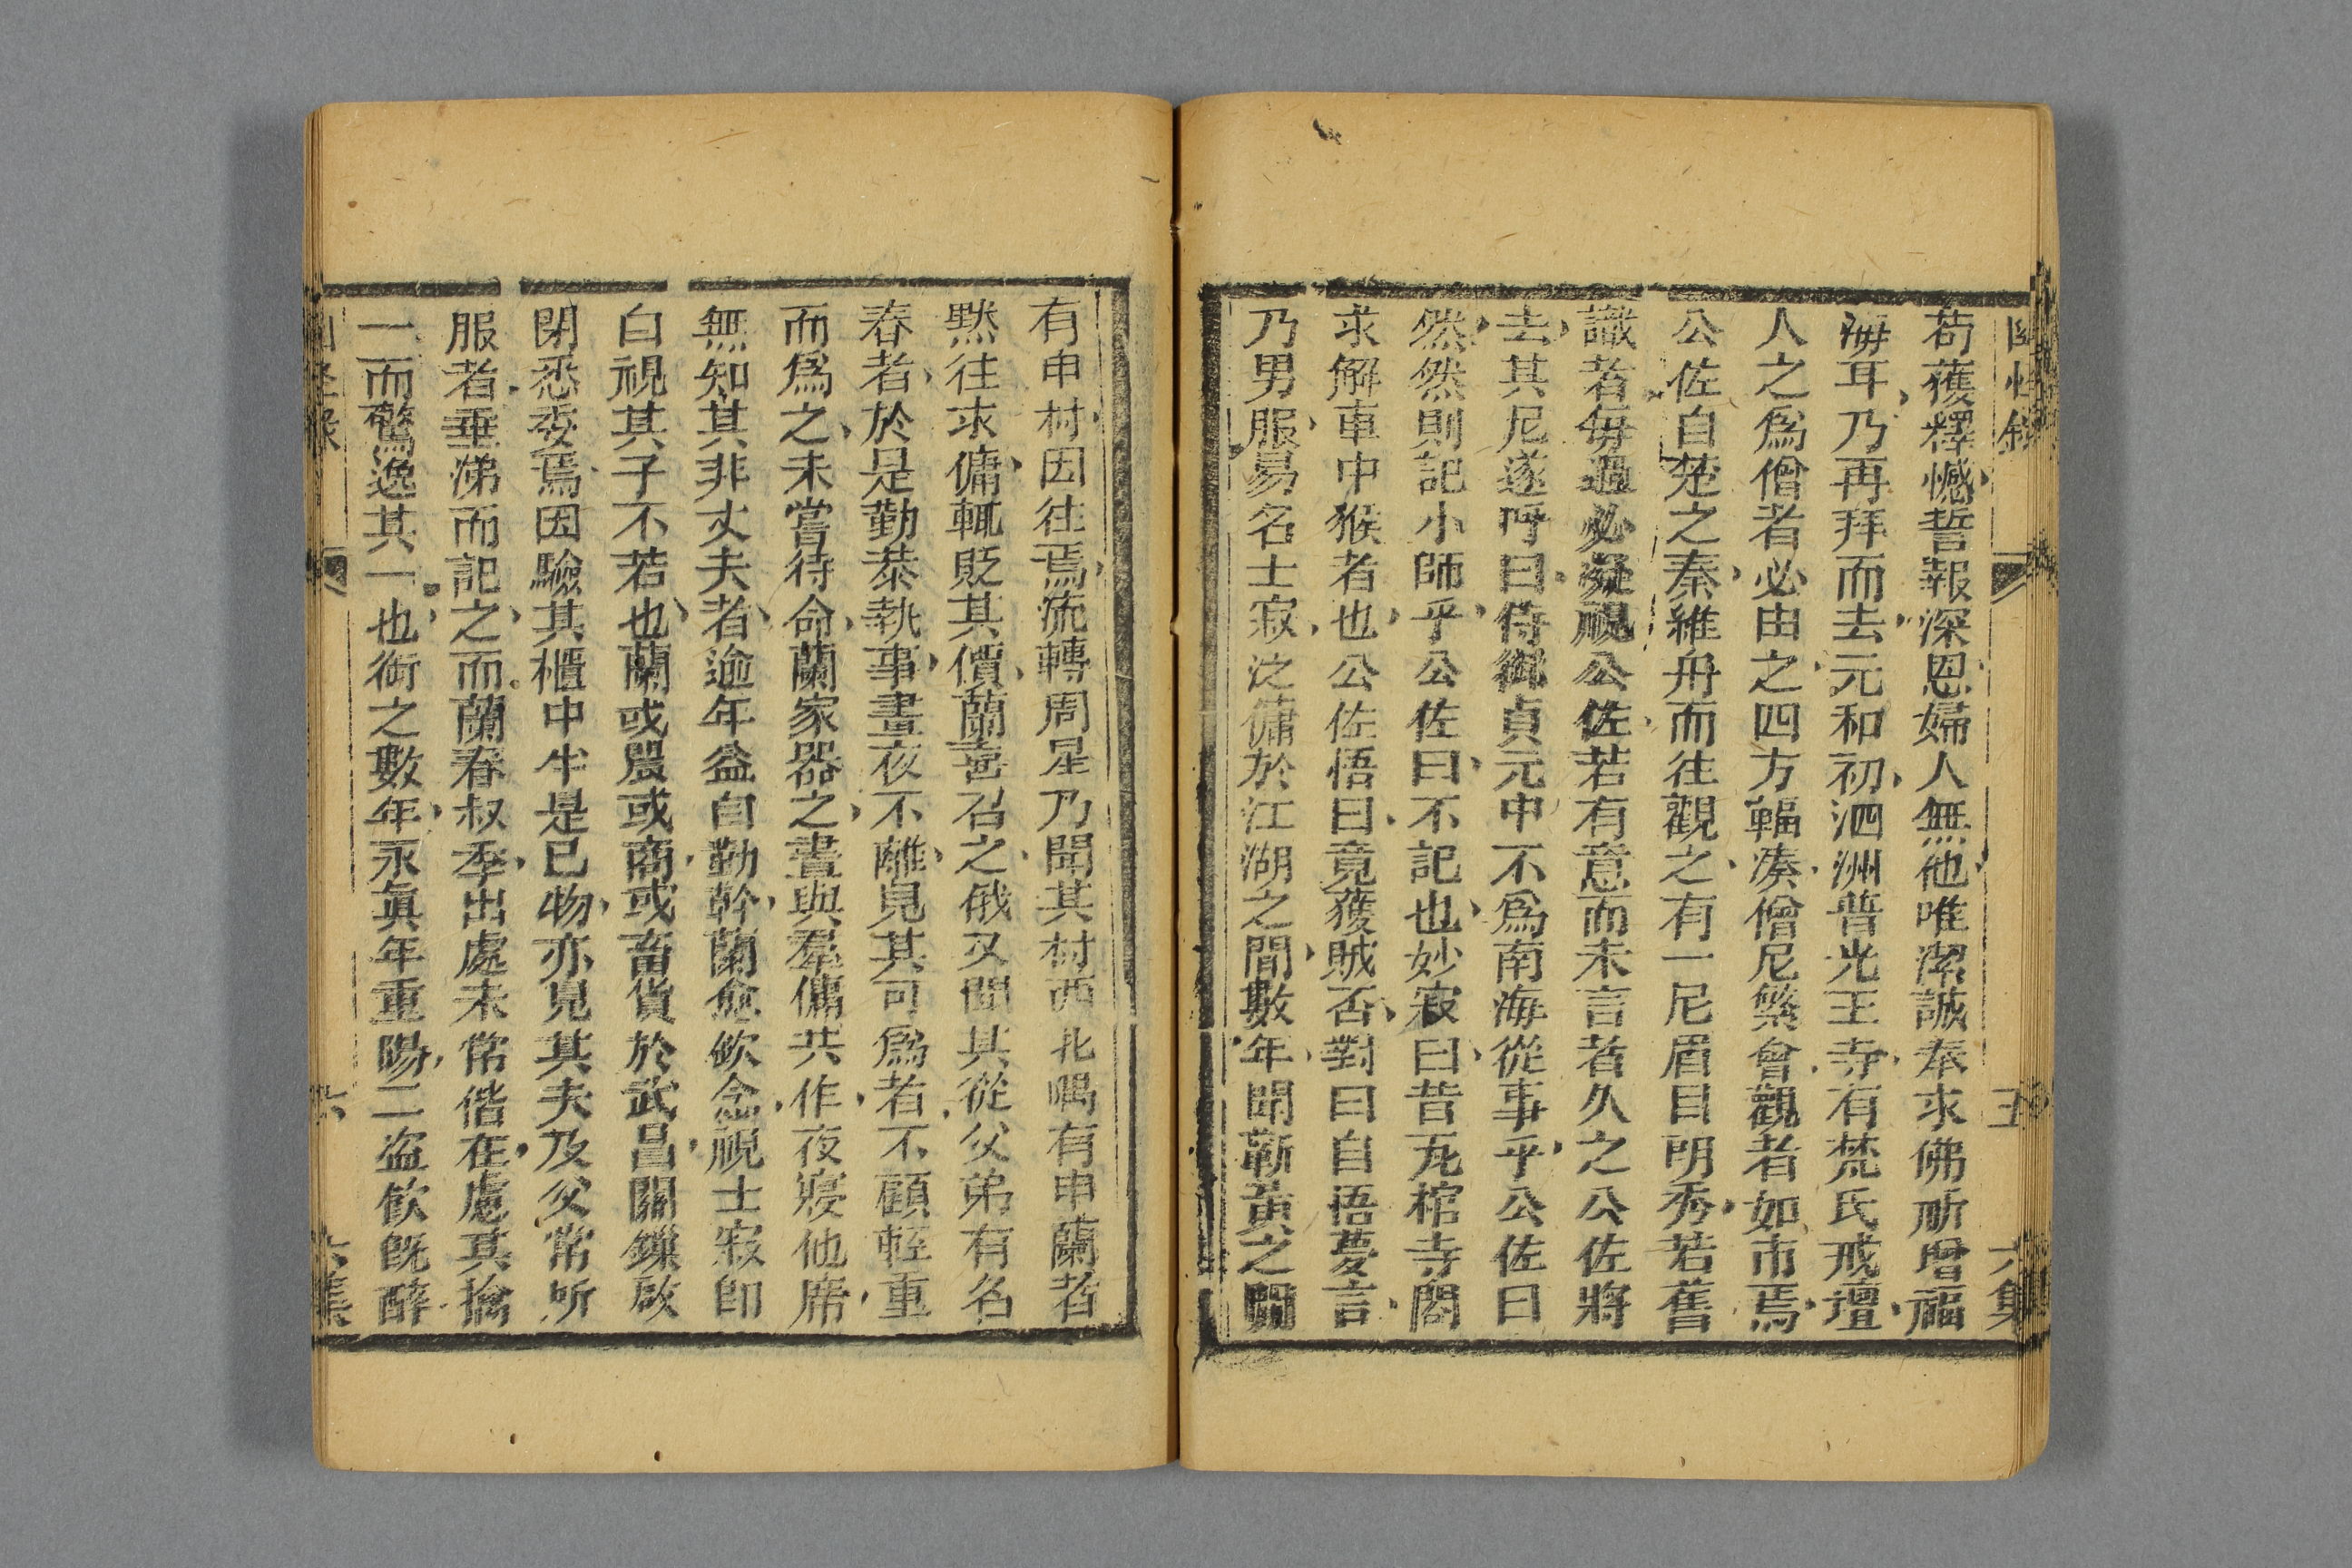 苟獲釋憾誓報深恩婦人無他唯潔誠奉求佛祈增福
海耳乃再拜而去元和初泗洲普光王寺有梵氏戒壇
人之爲僧者必由之四方輻湊僧尼繁會觀者如市焉
公佐自楚之秦維舟而往觀之有一尼眉目明秀若舊
識者每過必凝視公佐若有意而未言者久之公佐將
去其尼遂呼曰侍御貞元中不爲南海從事乎公佐曰
然然則記小師乎公佐曰不記也妙寂曰昔瓦棺寺閣
求解車中猴者也公佐悟曰竟獲賊否對曰自悟夢言
乃男服易名士寂泛傭於江湖之間數年聞蘄黃之間
有申村因往焉流轉周星乃聞其村西北隅有申蘭者
默往求傭輒貶其價蘭喜召之俄又聞其從父弟有名
春者於是勤恭執事晝夜不離見其可爲者不顧輕重
而爲之未嘗待命蘭家器之晝與羣傭共作夜寢他席
無知其非丈夫者逾年益自勤幹蘭愈欽念視士寂卽
白視其子不若也蘭或農或商或畜貨於武昌關鏁啟
閉悉委焉因驗其櫃中半是已物亦見其夫及父常所
服者垂涕而記之而蘭春叔季出處未常偕在慮其擒
一而驚逸其一也銜之數年永眞年重陽二盜飲旣醉
六
六集